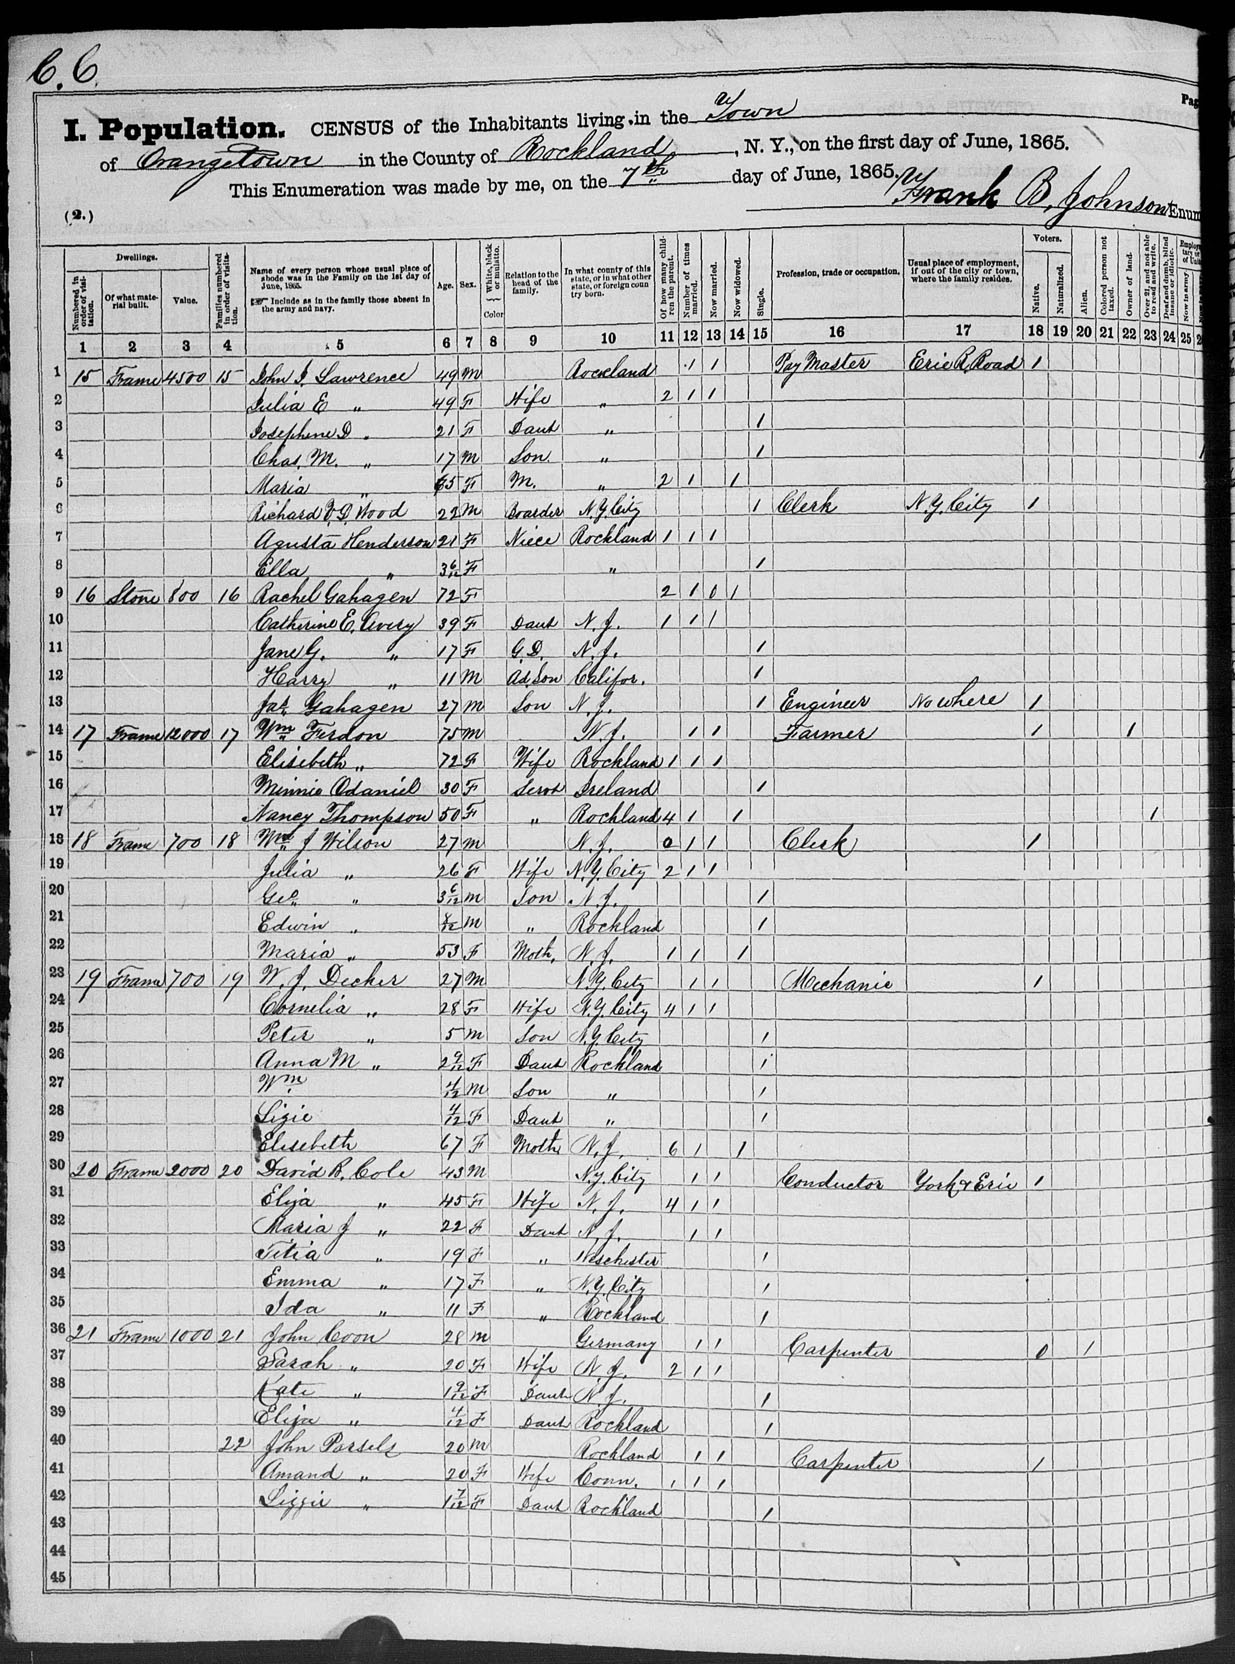 C. C.
Pag
I. Population. CENSUS of the Inhabitants living in the Town
of Orangetown in the County of Rockland, N. Y., on the first day of June, 1865.
This Enumeration was made by me, on the 7th day of June, 1865.
Frank B. Johnson Enum
(2.)
Dwellings. Voters. Employ
Numbered in order of visitation. Of what material built. Value. Families numbered in order of visitation. Name of every person whose usual place of abode was in the Family on the 1st day of June, 1865. Include as in the family those absent in the army and navy. Age. Sex. White, black or mulatto. Color Relation to the head of the family. In what county of this state, or in what other state, or foreign country born. Of how many children the parent. Number of times married. Now married. Now widowed. Single. Profession, trade or occupation. Usual place of employment, if out of the city or town, where the family resides. Native. Naturalized. Alien. Colored person not taxed. Owner of land. Over 21, and not able to read and write. Deaf and dumb, blind insane or idiotic. Now in army
1 2 3 4 5 6 7 8 9 10 11 12 13 14 15 16 17 18 19 20 21 22 23 24 25 2
1 15 Frame 4500 15 John J. Lawrence 49 M Rockland 1 1 Pay Master Erie R Road 1
2 Julia E " 49 F Wife " 2 1 1
3 Josephine D " 21 F Daut " 1
4 Chas. M. " 17 M Son " 1
5 Maria " 65 F M. " 2 1 1
6 Richard V. D. Wood 22 M Boarder N.Y. City 1 Clerk N.Y. City 1
7 Agusta Henderson 21 F Niece Rockland 1 1 1
8 Ella " 3 6/12 F " 1
9 16 Stone 800 16 Rachel Gahagen 72 F 2 1 0 1
10 Catherine E. Avery 39 F Daut N. J. 1 1 1
11 Jane G. " 17 F G. D. N. J. 1
12 Harry " 11 M Ad. Son Califor. 1
13 Jas. Gahagen 27 M Son N. J. 1 Engineer No where 1
14 17 Frame 12000 17 Wm Ferdon 75 M N. J. 1 1 Farmer 1 1
15 Elisebeth " 72 F Wife Rockland 1 1 1
16 Minnie Odaniel 30 F Servt Ireland 1
17 Nancy Thompson 50 F " Rockland 4 1 1 1
18 18 Frame 700 18 Wm J Wilson 27 M N. J. 0 1 1 Clerk 1
19 Julia " 26 F Wife N.Y. City 2 1 1
20 Geo. " 3 6/12 M Son N. J. 1
21 Edwin " M " Rockland 1
22 Maria " 53 F Moth. N. J. 1 1 1
23 19 Frame 700 19 W. J. Decker 27 M N.Y. City 1 1 Mechanic 1
24 Cornelia " 28 F Wife N.Y. City 4 1 1
25 Peter " 5 M Son N.Y. City 1
26 Anna M " 2 9/12 F Daut Rockland 1
27 Wm 4/12 M Son " 1
28 Lizie 4/12 F Daut " 1
29 Elisebeth 67 F Moth N. J. 6 1 1
30 20 Frame 2000 20 David B. Cole 43 M N.Y. City 1 1 Conductor York & Erie 1
31 Eliza " 45 F Wife N. J. 4 1 1
32 Maria J " 22 F Daut N. J. 1 1
33 Titia " 19 F " Weschester 1
34 Emma " 17 F N.Y. City 1
35 Ida " 11 F " Rockland 1
36 21 Frame 1000 21 John Coon 28 M Germany 1 1 Carpenter 0 1
37 Sarah " 20 F Wife N. J. 2 1 1
38 Kate " 1 9/12 F Daut N. J. 1
39 Eliza " 4/12 F Daut Rockland 1
40 22 John Parsels 20 M Rockland 1 1 Carpenter 1
41 Amand " 20 F Wife Conn. 1 1 1
42 Lizzie " 1 7/12 F Daut Rockland 1
43
44
45